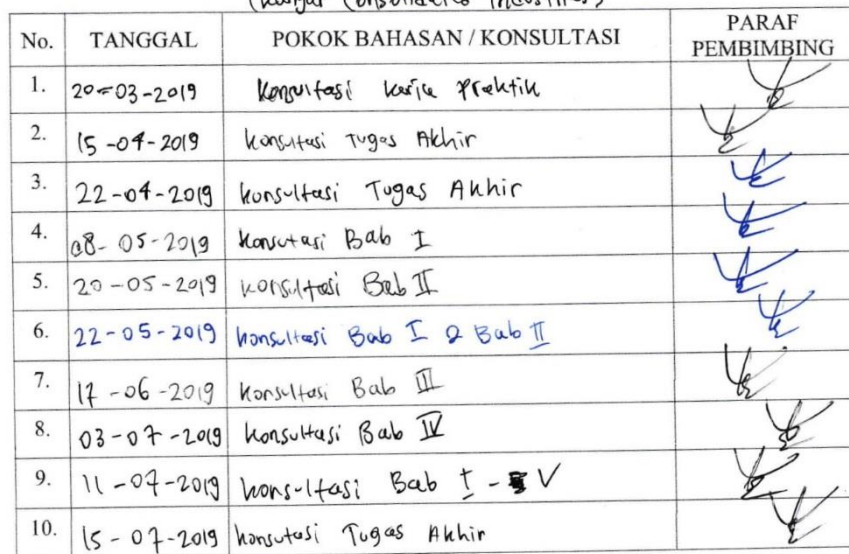 No. TANGGAL POKOK BAHASAN / KONSULTASI PARAF PEMBIMBING
1. 20-03-2019 Konsultasi Kerja Praktik
2. 15-04-2019 Konsultasi Tugas Akhir
3. 22-04-2019 Konsultasi Tugas Akhir
4. 08-05-2019 Konsutasi Bab I
5. 20-05-2019 Konsultasi Bab II
6. 22-05-2019 Konsultasi Bab I & Bab II
7. 17-06-2019 Konsultasi Bab III
8. 03-07-2019 Konsultasi Bab IV
9. 11-07-2019 Konsultasi Bab I - V
10. 15-07-2019 Konsutasi Tugas Akhir